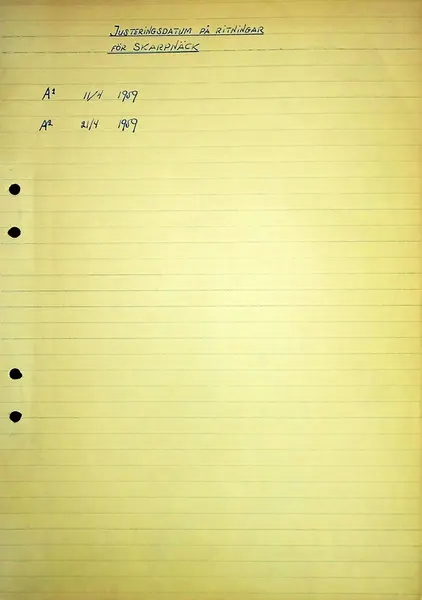 JUSTERINGSDATUM PÅ RITNINGAR
FÖR SKARPNÄCK
A¹ 11/4 1959
A² 21/4 1959